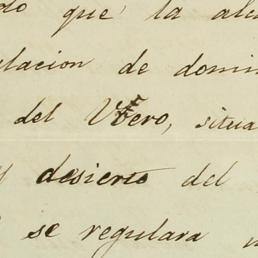 do que la alca
lacion de domin
del Vtero, situa
y desierto del
se regulara